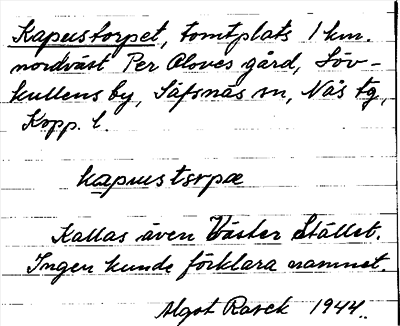 Kapustorpet, tomtplats 1 km.
nordväst Per Oloves gård, Löv-
kullens by, Säfsnäs sn, Nås tg,
Kopp. l.
kapustsrpæ
Kallas även Väster Stället.
Ingen kunde förklara namnet.
Algot Rasck 1944.